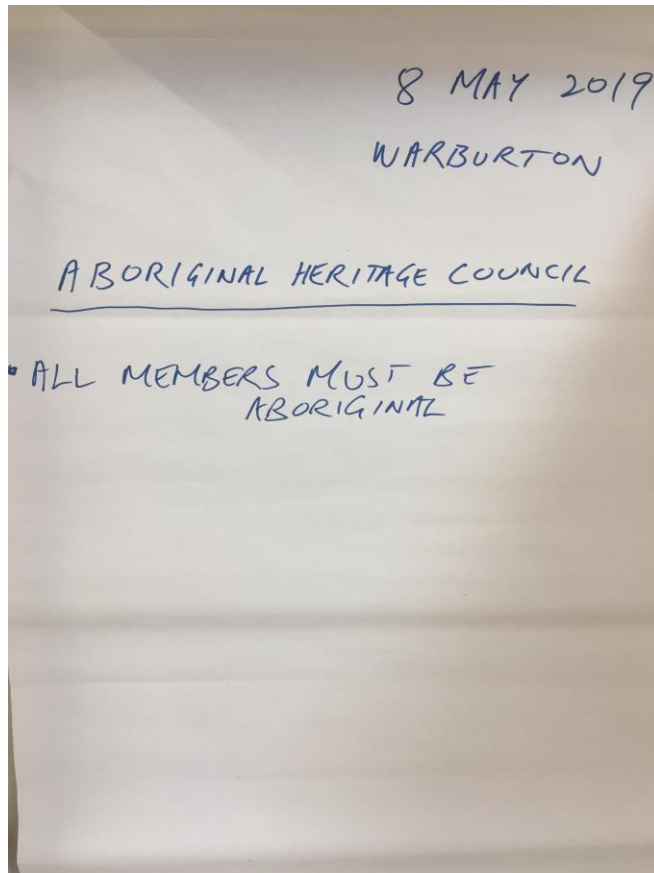 8 MAY 2019
WARBURTON
ABORIGINAL HERITAGE COUNCIL
• ALL MEMBERS MUST BE
ABORIGINAL